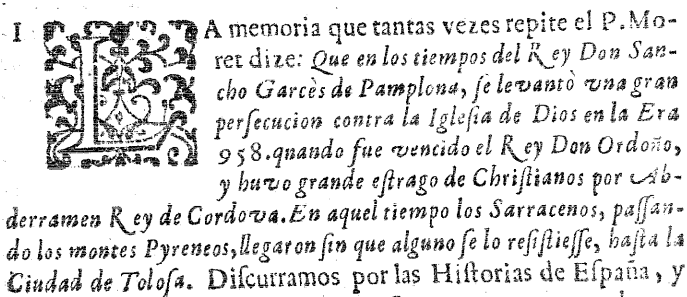 1 LA memoria que tantas vezes repite el P. Mo-
ret dize: Que en los tiempos del Rey Don San-
cho Garcès de Pamplona, ſe levantò vna gran
perſecucion contra la Igleſia de Dios en la Era
958. quando fue vencido el Rey Don Ordoño,
y huvo grande eſtrago de Chriſtianos por Ab-
derramen Rey de Cordova. En aquel tiempo los Sarracenos, paſſan-
do los montes Pyreneos, llegaron ſin que alguno ſe lo reſiſtieſſe, haſta la
Ciudad de Toloſa. Diſcurramos por las Hiſtorias de Eſpaña, y